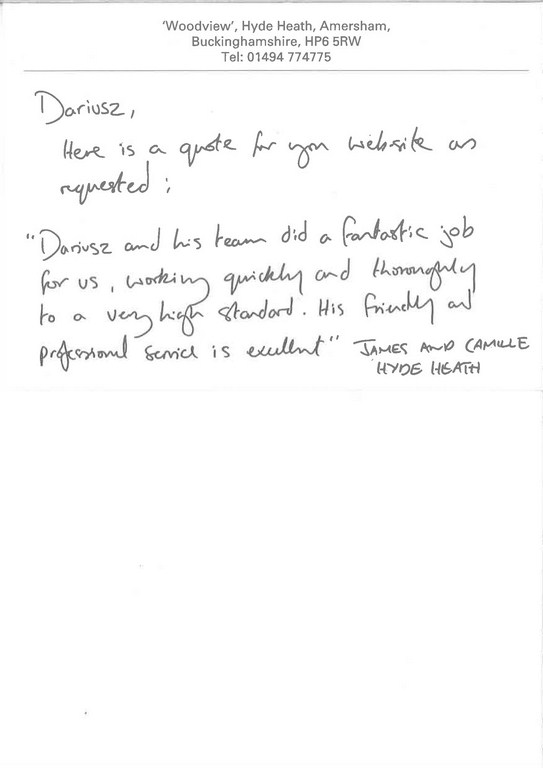 'Woodview', Hyde Heath, Amersham,
Buckinghamshire, HP6 5RW
Tel: 01494 774775
Dariusz,
Here is a quote for your website as
requested :
"Dariusz and his team did a fantastic job
for us, working quickly and thoroughly
to a very high standard. His friendly and
professional service is excellent" JAMES AND CAMILLE
HYDE HEATH